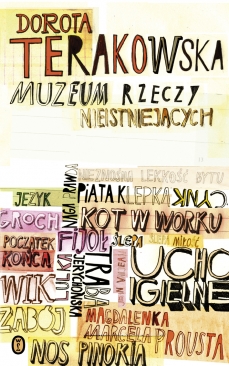 DOROTA
TERAKOWSKA
MUZEUM RZECZY
NIEISTNIEJĄCYCH
NIEZNOŚNA LEKKOŚĆ BYTU
JĘZYK
NAGA PRAWDA
PIĄTA KLEPKA
CYNK
GROCH
KOT W WORKU
POCZĄTEK
KOŃCA
FIJOŁ
ŚLEPA
ŚLEPA MIŁOŚĆ
LULKA
TRĄBA
JERYCHOŃSKA
UCHO
IGIELNE
WIK
ZABÓJ
MAGDALENKA
MARCELA PROUSTA
NOS PINOKIA